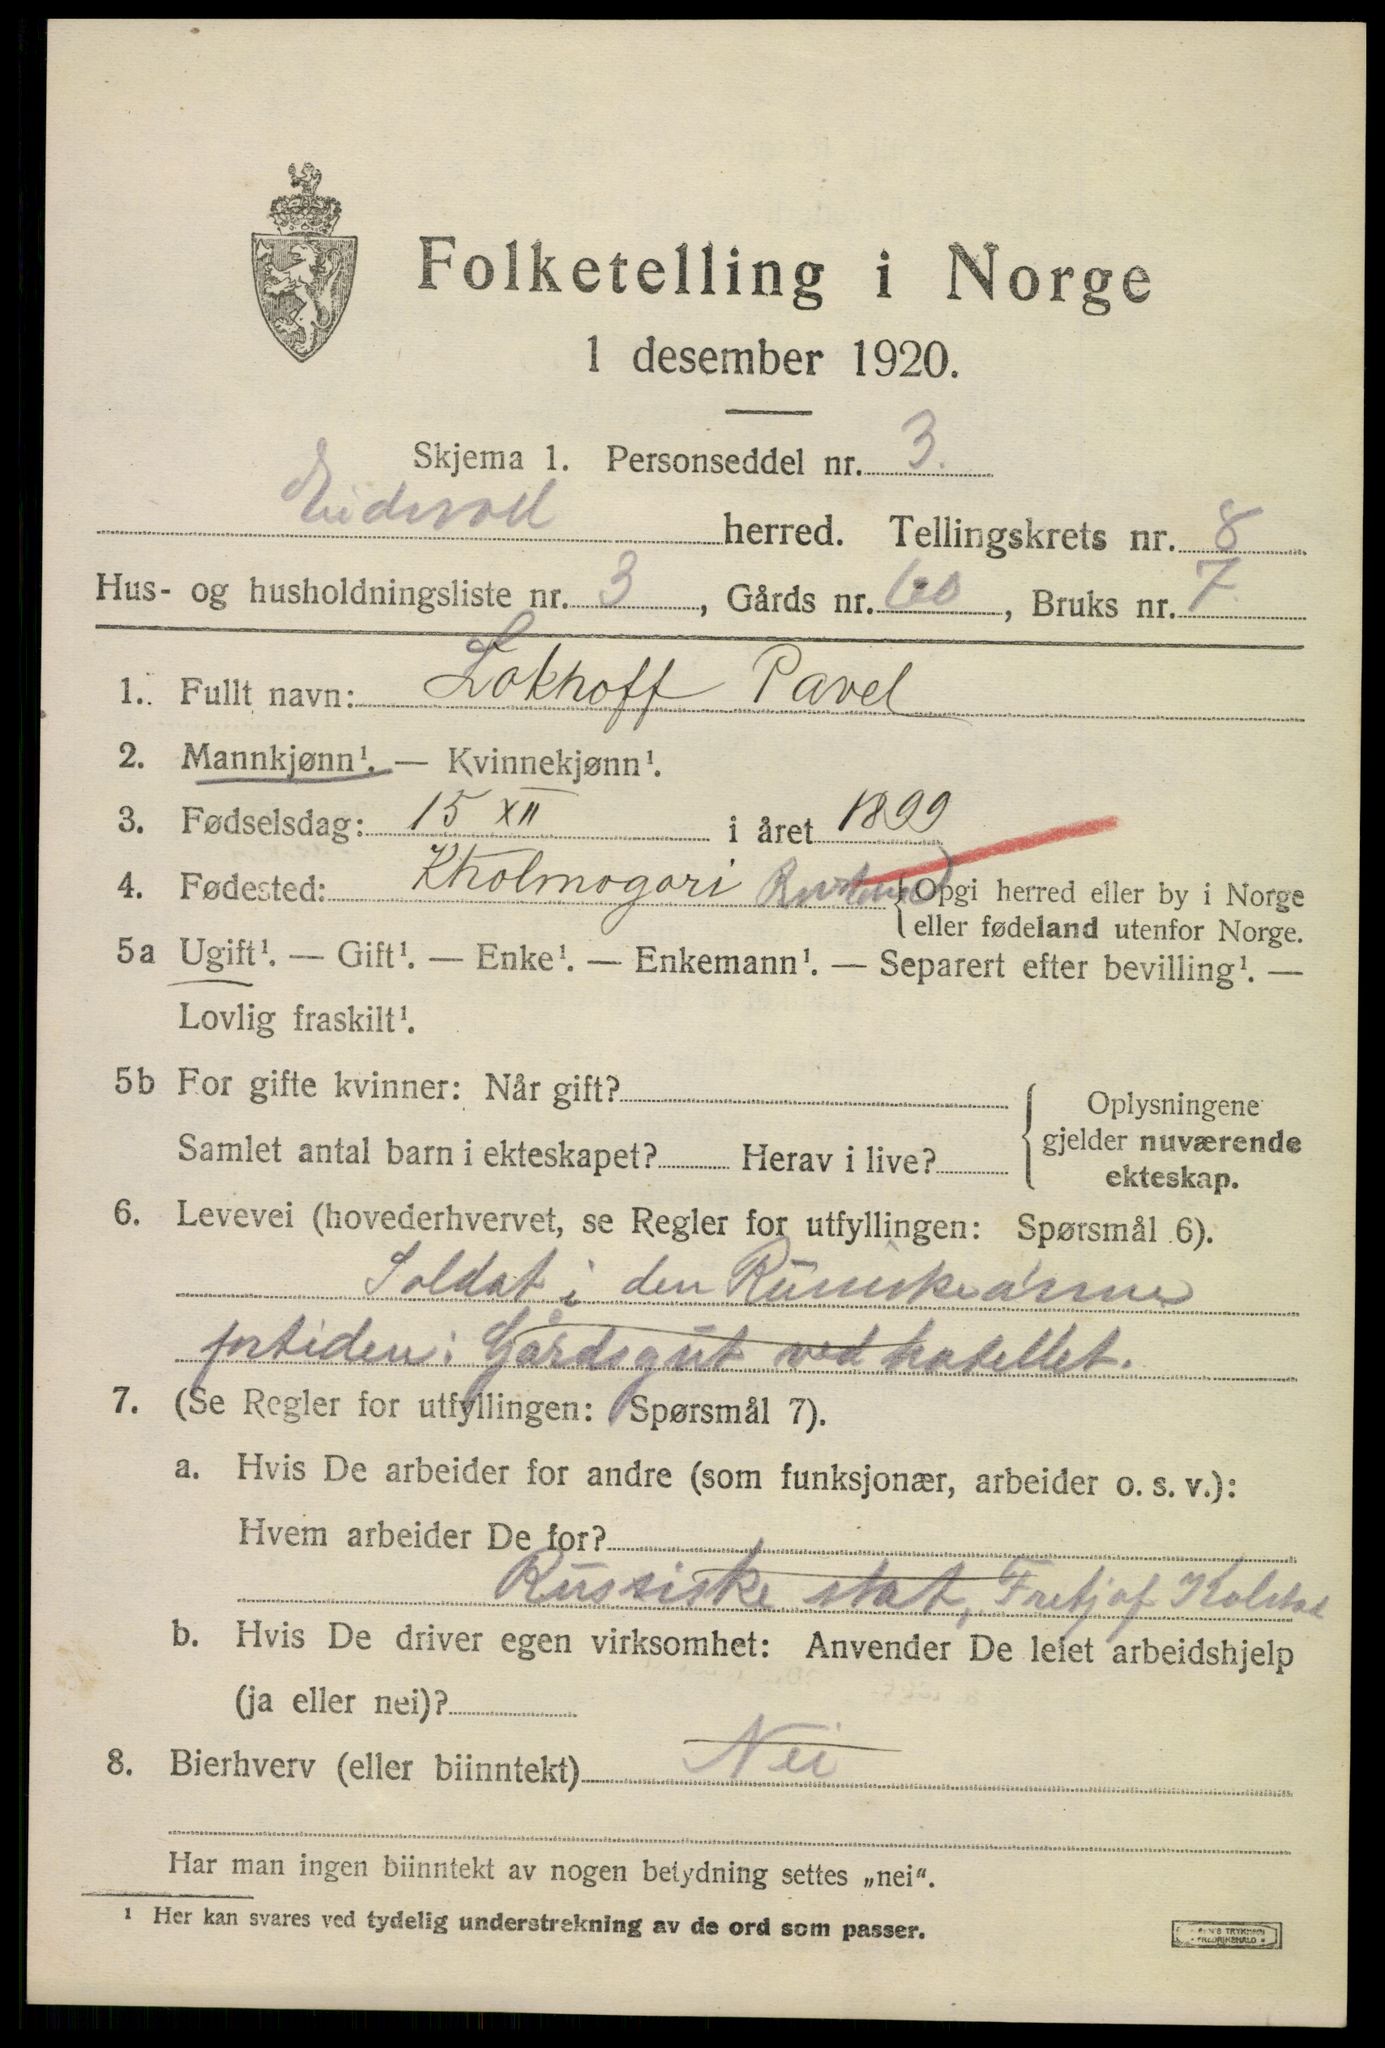 Folketelling i Norge
1 desember 1920.
Skjema 1. Personseddel nr. 3.
Eidsvoll herred. Tellingskrets nr. 8
Hus- og husholdningsliste nr. 3, Gårds nr. 60, Bruks nr. 7
1. Fullt navn: Lokhoff Pavel
2. Mannkjønn¹. — Kvinnekjønn¹.
3. Fødselsdag: 15 XII i året 1899
4. Fødested: Kholmogori Russland {Opgi herred eller by i Norge
eller fødeland utenfor Norge.
5a Ugift¹. — Gift¹. — Enke¹. — Enkemann¹. — Separert efter bevilling¹. —
Lovlig fraskilt¹.
5b For gifte kvinner: Når gift?
Samlet antal barn i ekteskapet? Herav i live?
Oplysningene
gjelder nuværende
ekteskap.
6. Levevei (hovederhvervet, se Regler for utfyllingen: Spørsmål 6).
Soldat i den Russiske arme
fortiden: Gårdsgut ved hotellet.
7. (Se Regler for utfyllingen: Spørsmål 7).
a. Hvis De arbeider for andre (som funksjonær, arbeider o. s. v.):
Hvem arbeider De for?
Russiske stat, Fretjof Kolstad
b. Hvis De driver egen virksomhet: Anvender De leiet arbeidshjelp
(ja eller nei)?
8. Bierhverv (eller biinntekt) Nei
Har man ingen biinntekt av nogen betydning settes „nei“.
¹ Her kan svares ved tydelig understrekning av de ord som passer.